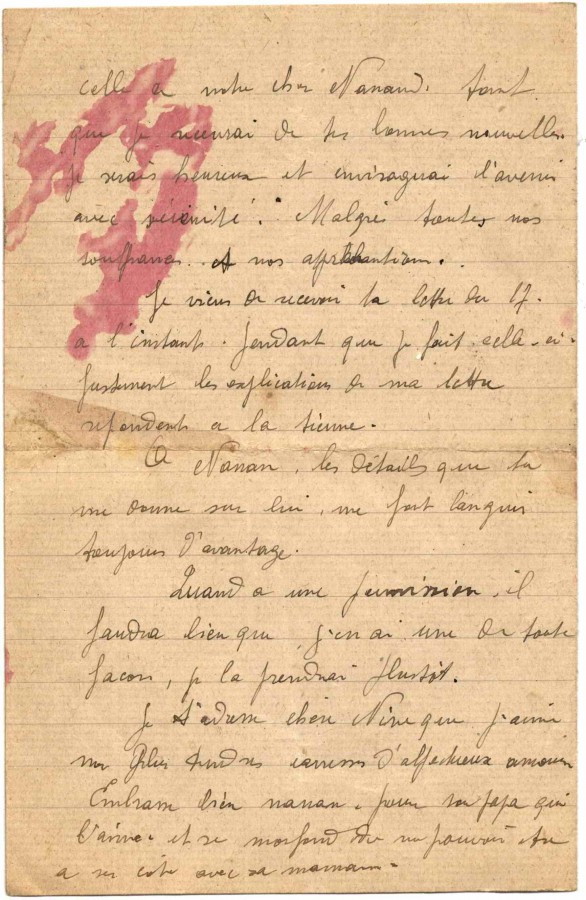 celle a notre cher Nanand. tant
que je recevrai de tes bonnes nouvelles.
je serais heureux et envisagerai l'avenir
avec sérénité. Malgrès toutes nos
souffrances. et nos apréhantions.
Je viens de recevoir ta lettre du 17.
a l'instant. pendant que je fait celle-ci.
justement les explications de ma lettre
repondents a la tienne.
O Nanan, les détails que tu
me donne sur lui, me font languir
toujours d'avantage.
Quand a une permission, il
faudra bien que j'en ai une de toute
facon, je la prendrai plustôt.
Je t'adresse chère Nine que j'aime
mes plus tendres caresses d'affectueux amour
Embrasse bien nanan. pour son papa qui
l'aime. et se morfond de ne pouvoir être
a ses coté avec sa maman.